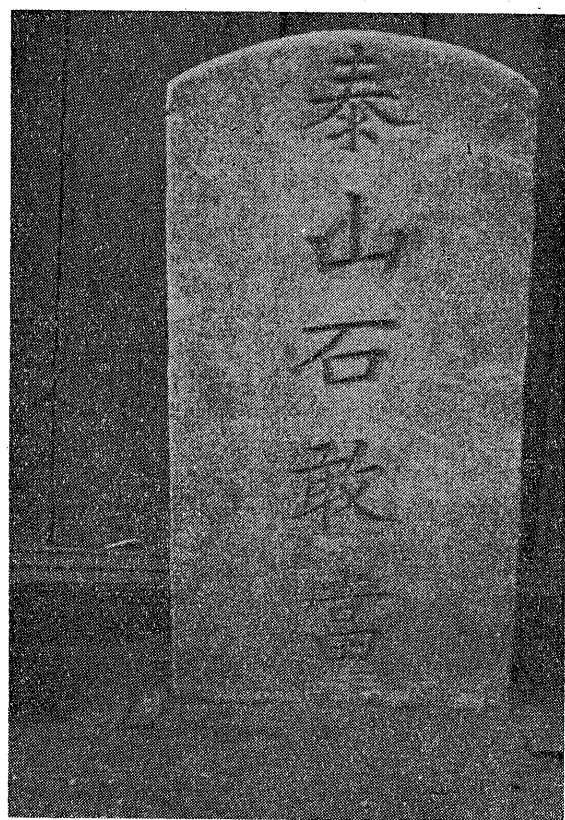 泰山石敢當